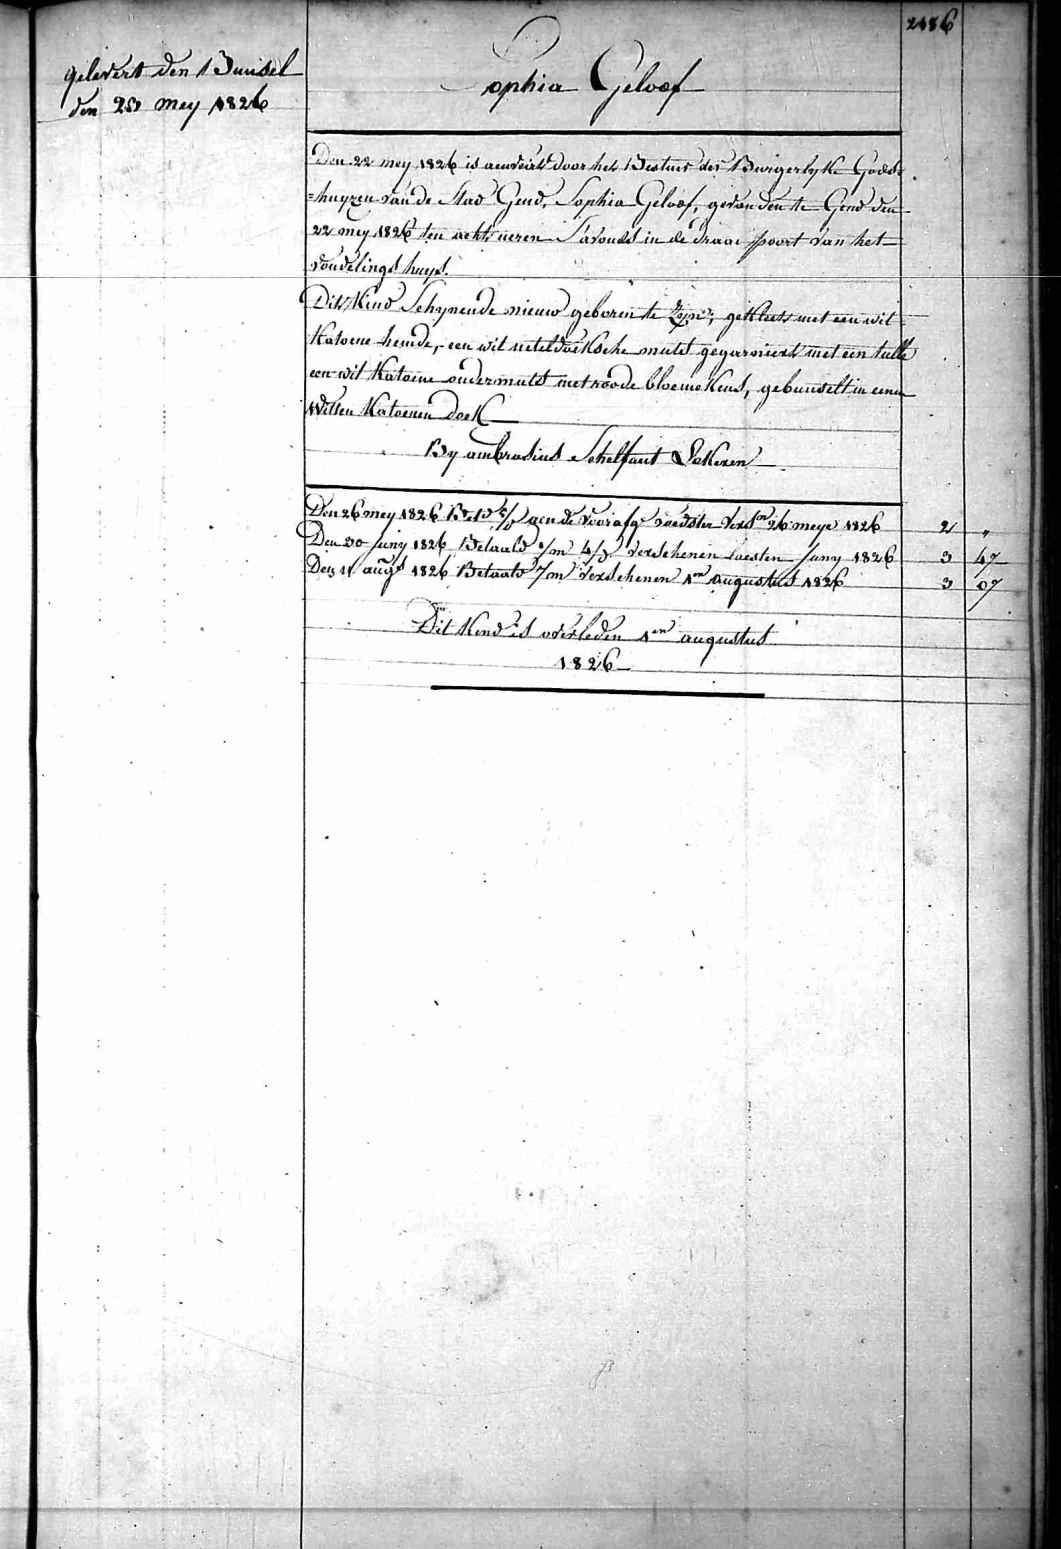 2486
gelevert den Bunsel
den 25 mey 1826
Sophia Geloof
Den 22 mey 1826 is aenveirt door het Bestuer der Burgerlyke Gods-
=huyzen van de Stad Gend, Sophia Geloof, gevonden te Gend den
22 mey 1826 ten acht ueren S'avonds in de draai poort van het
vondelings huys.
Dit Kind Schynende nieuw geboren te Zyn, gekleets met een wit
Katoene hemde, een wit neteldoeksche muts gegarniert met een tulle
een wit Katoene ondermuts met roode bloemekens, gebunselt in eenen
Witten Katoenen doek
By ambrosius Schelfaut Lokeren
Den 26 mey 1826 aen de voorafge voedster 26 meye 1826 2 "
Den 30 Juny 1826 Betaald verschenen Juny 1826 3 47
Den 11 augs 1826 Betaald verschenen 1en augustus 1826 3 07
Dit Kind is overleden 1en augustus
1826